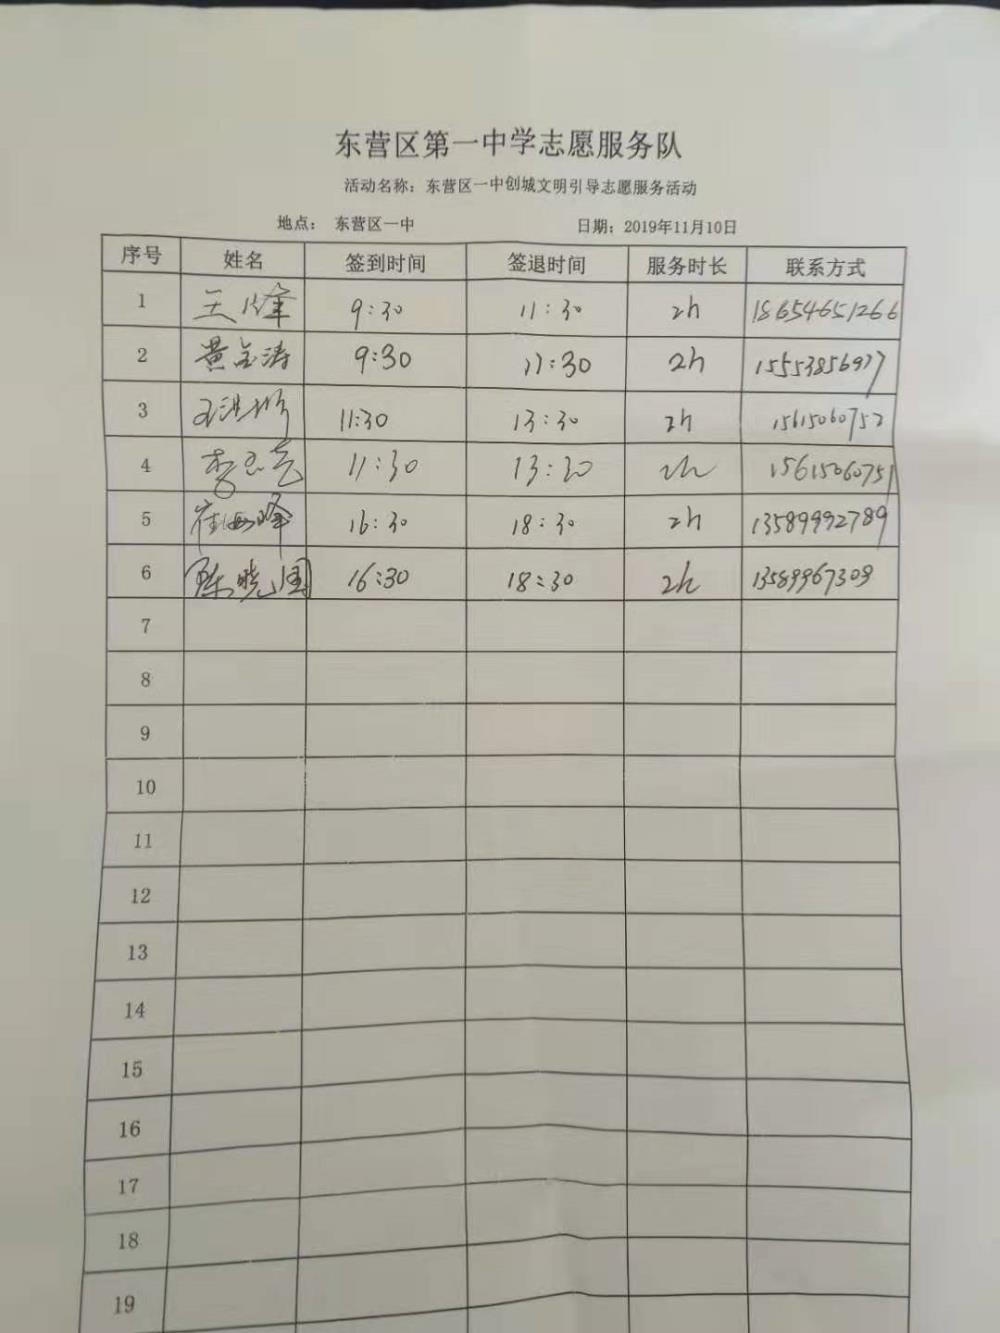 东营区第一中学志愿服务队
活动名称：东营区一中创城文明引导志愿服务活动
地点： 东营区一中 日期：2019年11月10日
序号 姓名 签到时间 签退时间 服务时长 联系方式
1 王峰 9:30 11:30 2h 18654651266
2 黄金涛 9:30 11:30 2h 15553856977
3 11:30 13:30 2h 15615060752
4 11:30 13:30 2h 15615060751
5 崔海峰 16:30 18:30 2h 13589992789
6 陈晓国 16:30 18:30 2h 13589967309
7
8
9
10
11
12
13
14
15
16
17
18
19